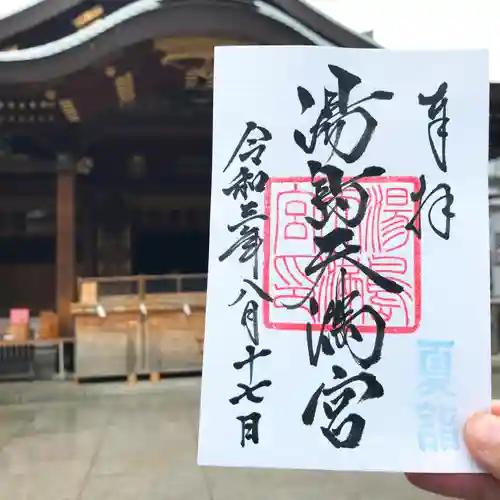 奉拝
湯島天満宮
令和三年八月十七日
夏詣